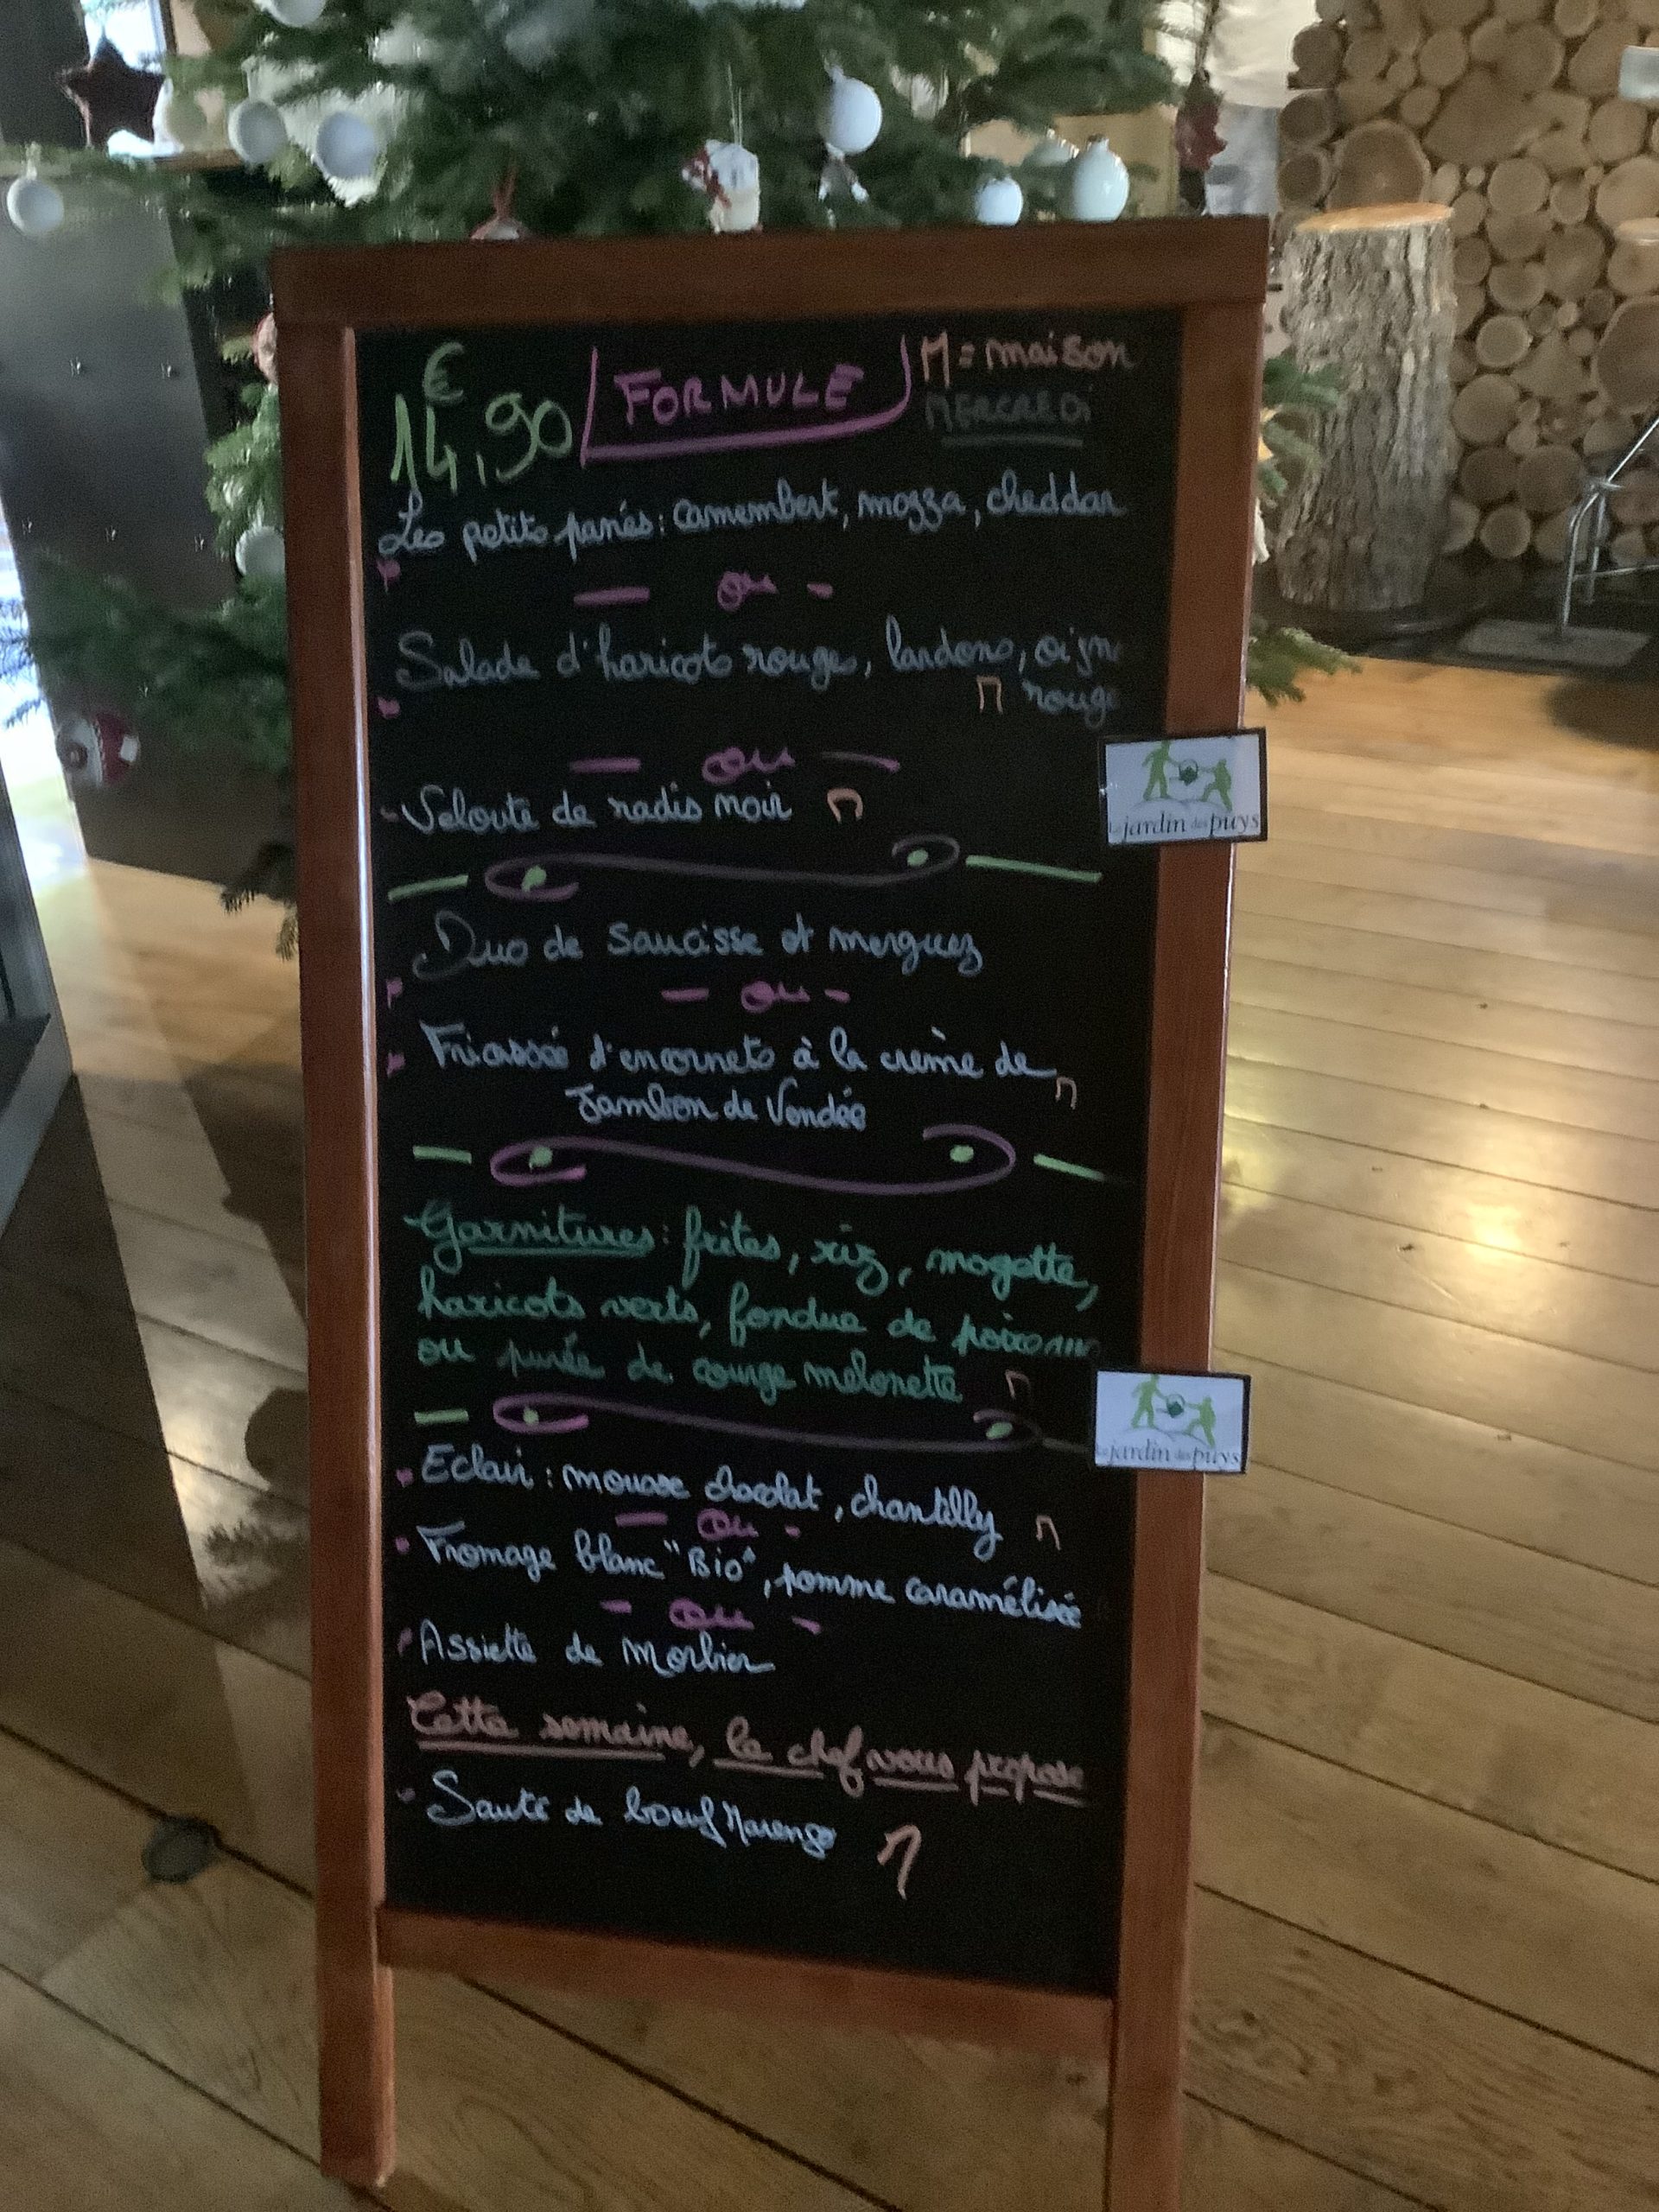 14,90 €
FORMULE
M = maison
MERCREDI
Les petits panés : camembert, mozza, cheddar
ou
Salade d'haricots rouges, lardons, oign
M rouge
ou
Velouté de radis noir M
Le jardin des puys
Duo de saucisse et merguez
ou
Fricassé d'encornets à la crème de
Jambon de Vendée M
Garnitures : frites, riz, mogette,
haricots verts, fondue de poireaux
ou purée de courge melonette M
Le jardin des puys
Eclair : mousse chocolat, chantilly M
ou
Fromage blanc "Bio", pomme caramélisée
ou
Assiette de Morbier
Cette semaine, le chef vous propose
Sauté de boeuf Marengo M